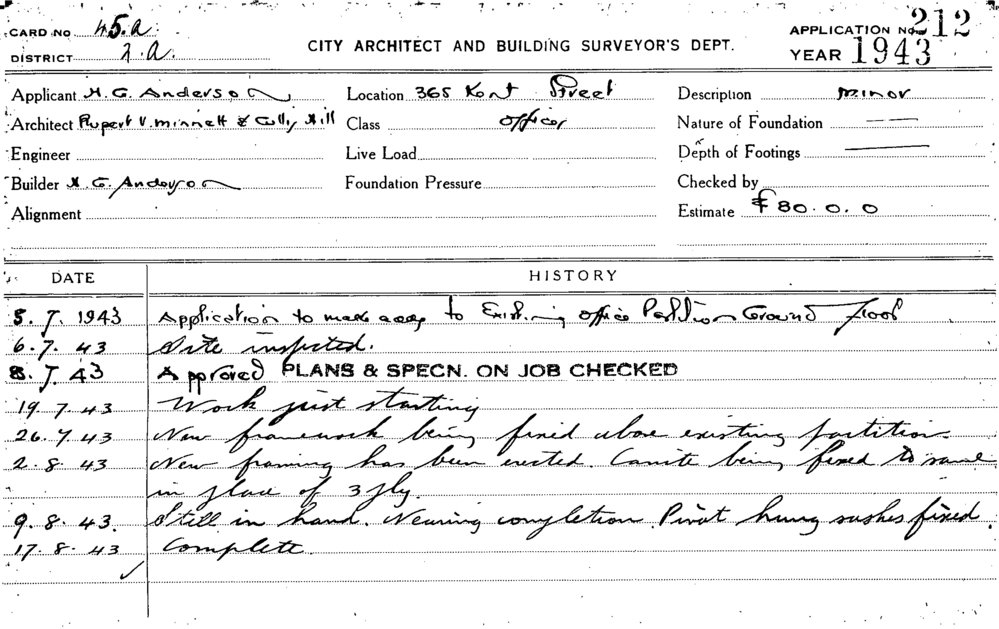 CARD NO 45.a. APPLICATION NO. 212
DISTRICT 2.a. CITY ARCHITECT AND BUILDING SURVEYOR'S DEPT. YEAR 1943
Applicant H. G. Anderson Location 365 Kent Street Description minor
Architect Rupert V. Minnett & Cullis Hill Class offices Nature of Foundation —
Engineer Live Load Depth of Footings —
Builder H. G. Anderson Foundation Pressure Checked by
Alignment Estimate £80.0.0
DATE HISTORY
5. 7. 1943 Application to make to Existing office Partition Ground floor
6. 7. 43 Site inspected.
8. 7. 43 Approved PLANS & SPECN. ON JOB CHECKED
19. 7. 43 Work just starting
26. 7. 43 New framework being fixed above existing partition.
2. 8. 43 New framing has been erected. Canite being fixed to same
in place of 3 ply.
9. 8. 43. Still in hand. Nearing completion. Pivot hung sashes fixed.
17. 8. 43 Complete.